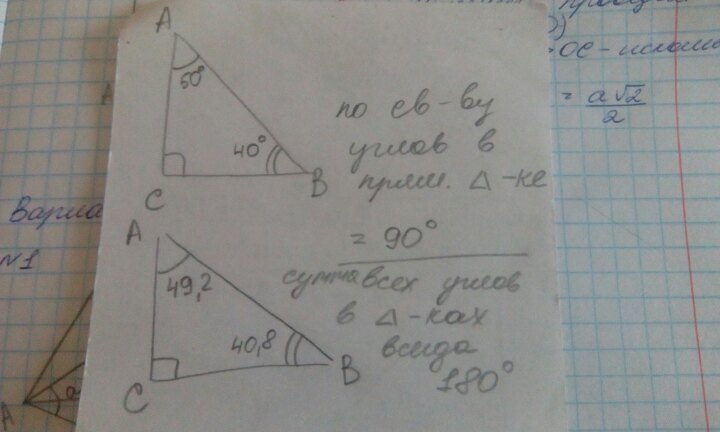 A
50°
40°
C
B
по св-ву
углов в
прям. Δ-ке
= 90°
A
49,2
40,8
C
B
сумма всех углов
в Δ-ках
всегда
180°
OC -
= a√2
2
Вариа
N1
A
a